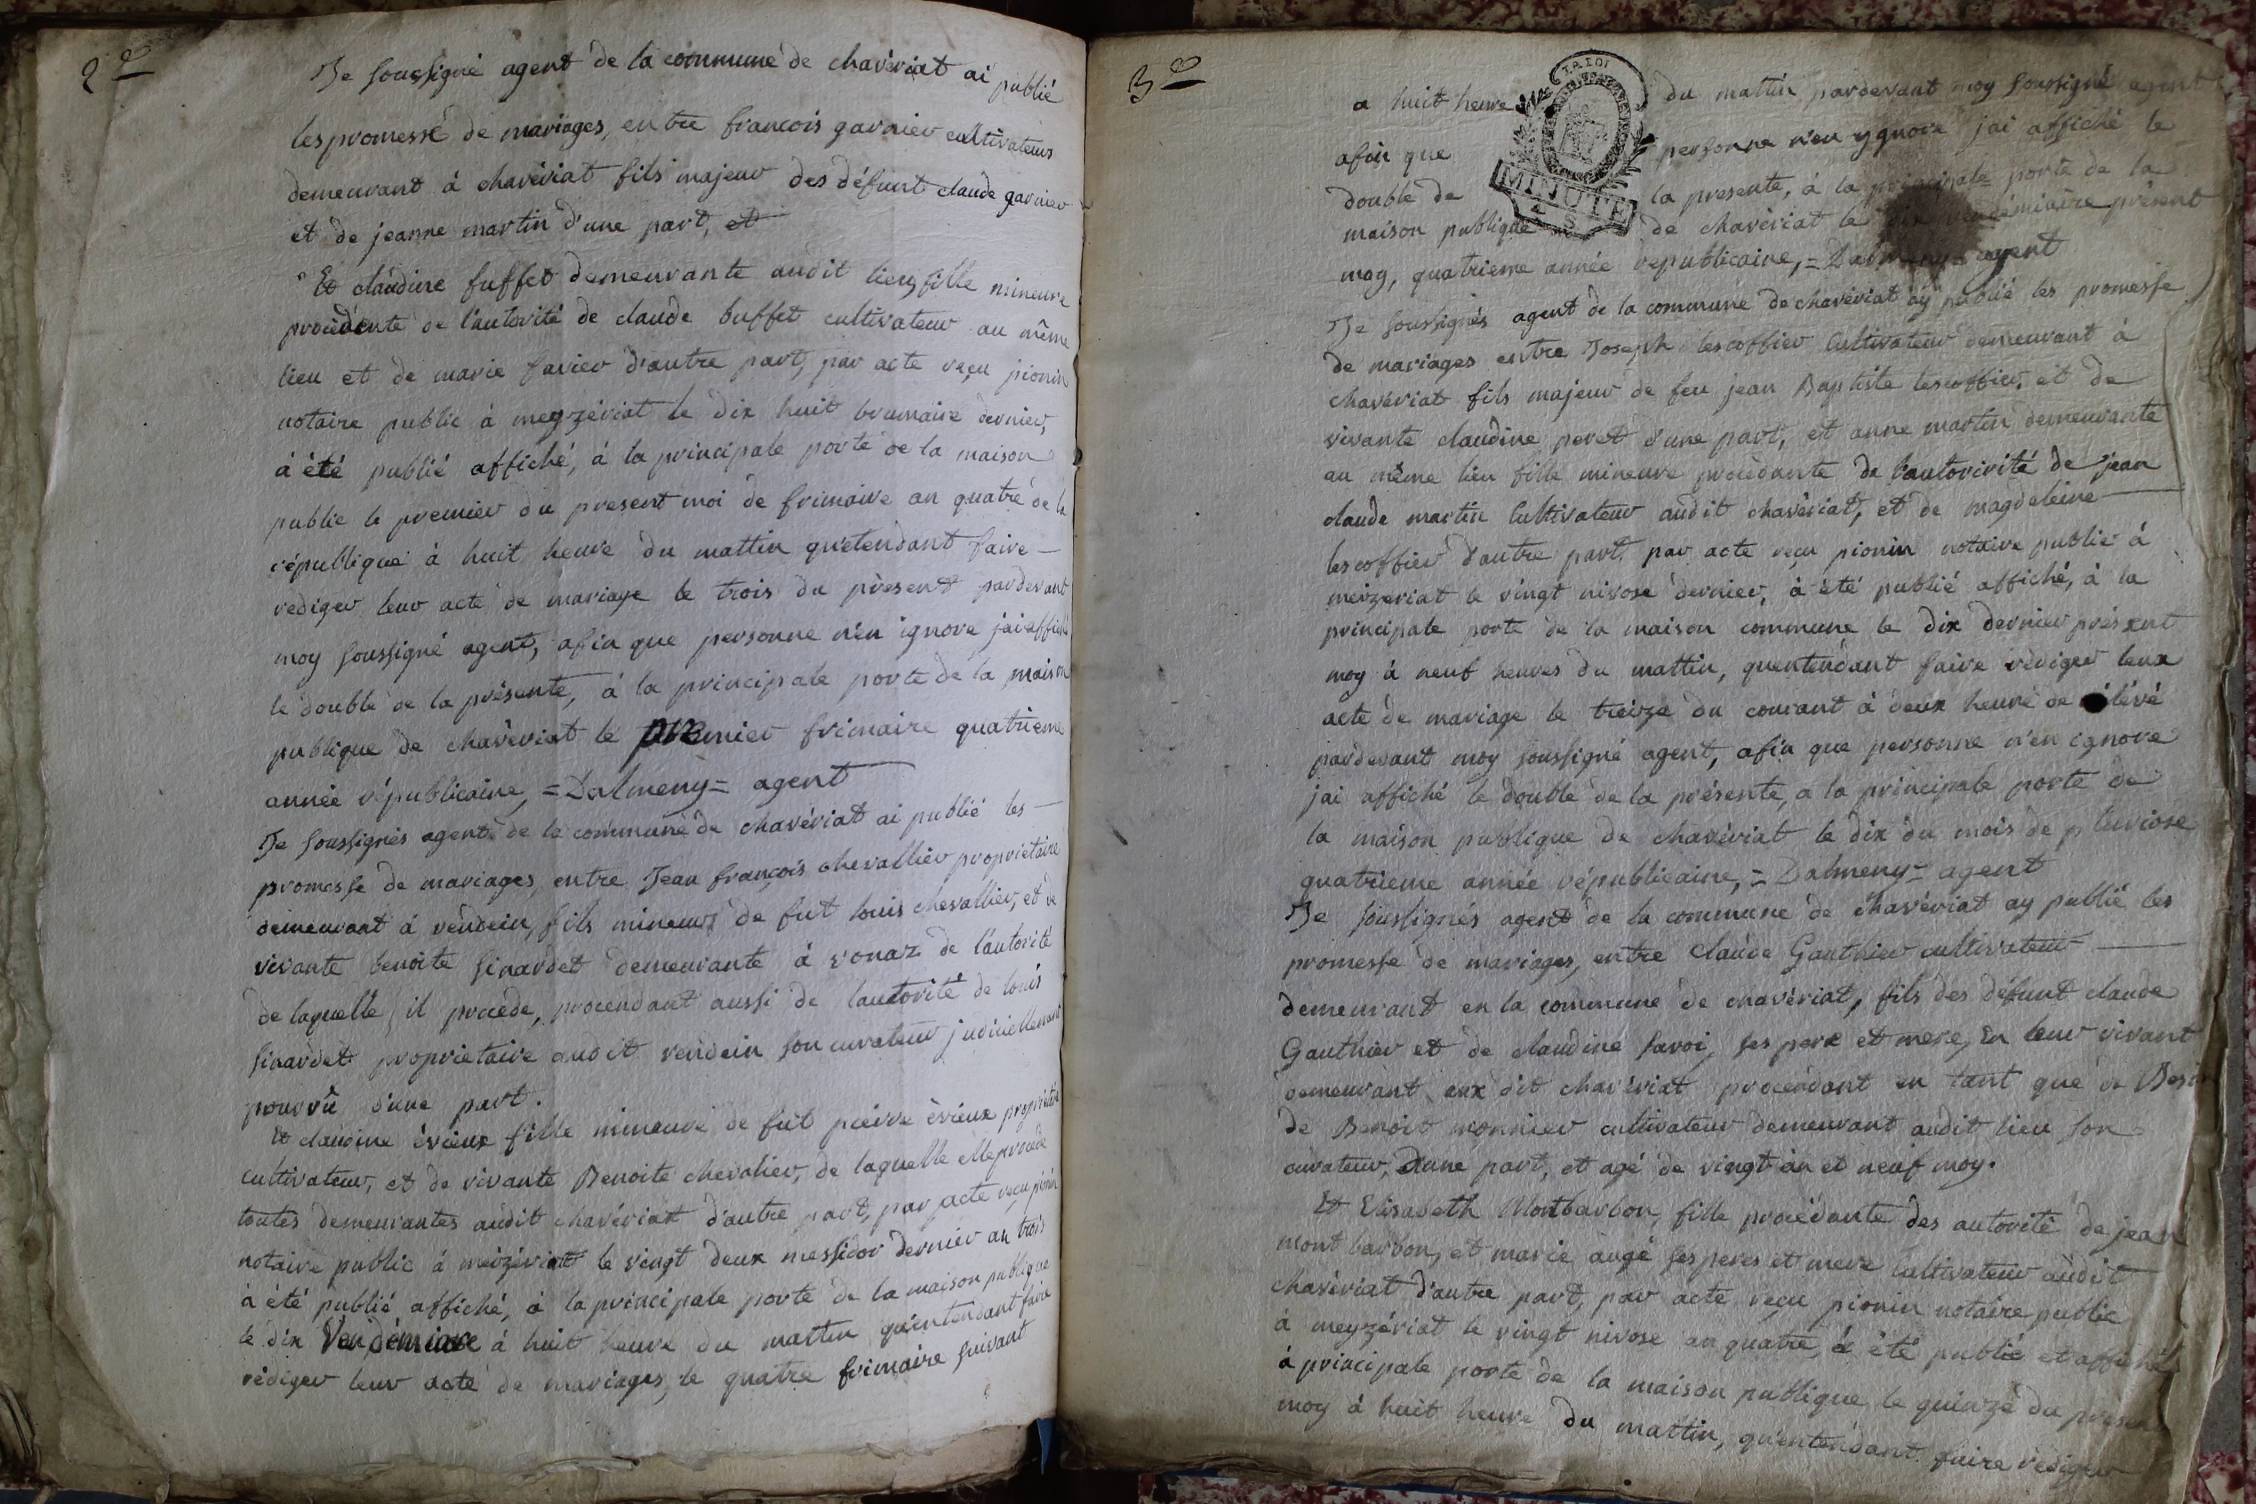 2e
Je soussigné agent de la commune de chavériat ai publié
les promesse de mariages, entre francois garnier cultivateurs
demeurant á chavériat fils majeur des défunt claude garnier
et de jeanne martin d'une part, et
Et claudine fuffet demeurante audit lieu, fille mineure
procédente de l'autorité de claude buffet cultivateur au même
lieu et de marie favier d'autre part, par acte reçu pionin
notaire public á meyzériat le dix huit brumaire dernier,
á été publié affiché, á la principale porte de la maison
public le premier du present moi de frimaire an quatre de la
république á huit heure du mattin qu'etendant faire
rediger leur acte de mariage le trois du présent pardevant
moy soussigné agent, afin que personne n'en ignore jai affiché
le double de la présente, á la principale porte de la maison
publique de chavériat le premier frimaire quatrieme
année républicaine, = Dalmeny = agent
Je soussignés agent de la commune de chavériat ai publié les
promesse de mariages, entre Jean françois chevallier proprietaire
demeurant á vendein, fils mineurs de fut louis chevallier, et de
vivante benoite sinardet demeurante á vonaz de l'autorité
de laquelle il procede, procendant aussi de lautorité de louis
sinardet proprietaire audit vendein son curateur judiciellement
pourvû d'une part.
Et claudine évieux fille mineure de fut pierre évieux proprietaire
cultivateur, et de vivante Benoite chevalier, de laquelle elle procede
toutes demeurantes audit chavériat d'autre part, par acte reçu pionin
notaire public á meizériat le vingt deux messidor dernier an trois
á été publié affiché, á la principale porte de la maison publique
le dix Vendémiaire á huit heure du mattin qu'entendant faire
rédiger leur acte de mariages, le quatre frimaire suivant
3e
a huit heure du mattin pardevant moy soussigné agent
LA LOI
MINUTE
4 S
afin que personne n'en ygnore jai affiché le
double de la presente, á la principale porte de la
maison publique de chavériat le vendémiaire présent
moy, quatrieme année republicaine, = Dalmeny = agent
Je soussignés agent de la commune de chavériat ay publié les promesse
de mariages entre Joseph lescoffier Cultivateur demeurant á
chavériat fils majeur de feu jean Baptiste lescoffier, et de
vivante claudine peret d'une part, et anne martin demeurante
au même lieu fille mineure procédante de l'autorivité de jean
claude martin Cultivateur audit chavériat, et de magdeleine
lescoffier d'autre part, par acte reçu pionin notaire public á
meizeriat le vingt nivose dernier, á été publié affiché, á la
principale porte de la maison commune le dix dernier présent
moy á neuf heures du mattin, quentendant faire rédiger leux
acte de mariage le treize du courant á deux heure de rélévé
pardevant moy soussigné agent, afin que personne n'en ignore
jai affiché le double de la présente, a la principale porte de
la maison publique de chavériat le dix du mois de pluviose
quatrieme année républicaine, = Dalmeny = agent
Je soussignés agent de la commune de chavériat ay publié les
promesse de mariages, entre Claude Gauthier cultivateur
demeurant en la commune de chavériat, fils des défunt claude
Gauthier et de claudine savoi, ses pere et mere, En leur vivant
demeurant aux dit chavériat procendant en tant que de Besoin
de Benoit monnier cultivateur demeurant audit lieu son
curateur, d'une part, et agé de vingt an et neuf moy.
Et Elisabeth Montbarbon, fille procédante des autorité de jean
mont barbon, et marie augé ses peres et mere Cultivateur audit
chavériat d'autre part, par acte reçu pionin notaire public
á meyzériat le vingt nivose an quatre, á été publié et affiché
á principale porte de la maison publique le quinze du présent
moy á huit heure du mattin, qu'entendant faire rédiger